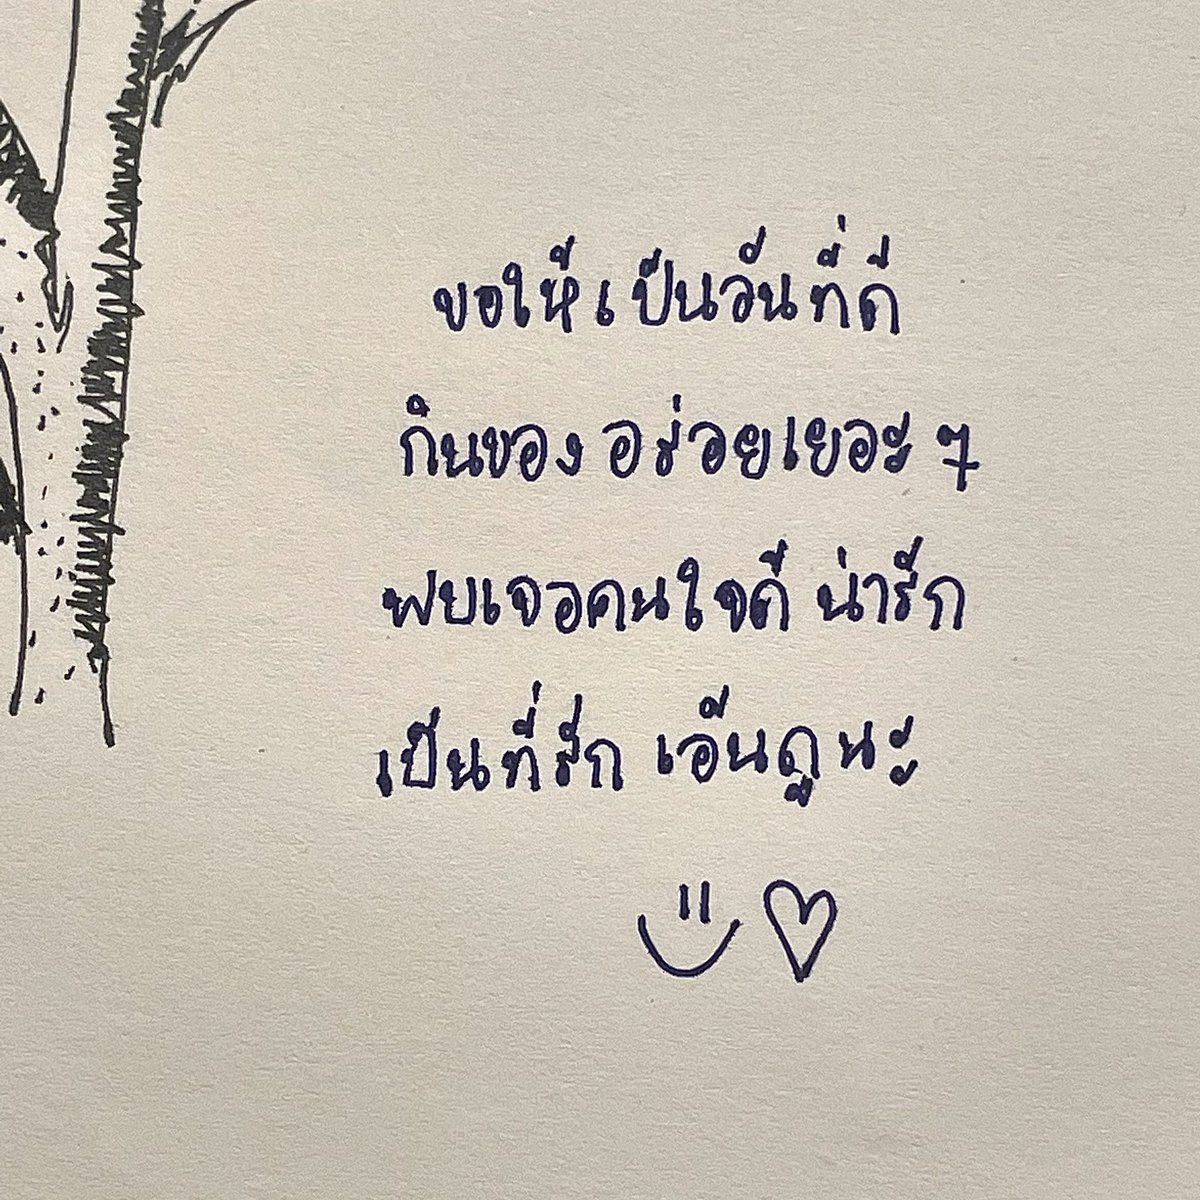 ขอให้เป็นวันที่ดี
กินของ อร่อยเยอะ ๆ
พบเจอคนใจดี น่ารัก
เป็นที่รัก เอ็นดู นะ